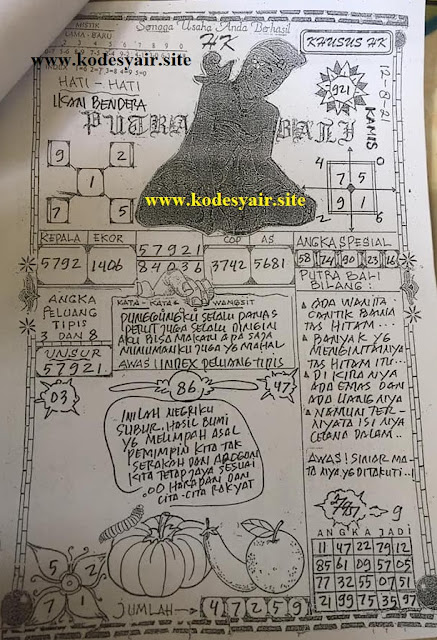 Semoga Usaha Anda Berhasil
MISTIK
LAMA - BARU
HK
KHUSUS HK
www.kodesyair.site
12-8-21
KAMIS
921
HATI - HATI
IKAN BENDERA
PUTRA BALI
9 2
1
7 5
0
4
7 5
9 1
6
www.kodesyair.site
KEPALA EKOR
5792 1406
57921
84036
COP AS
3742 5681
ANGKA SPESIAL
58 74 90 23 16
ANGKA
PELUANG
TIPIS
3 DAN 8
UNSUR
57921
KATA - KATA WANGSIT
PUNGGUNGKU SELALU PANAS
PERUT JUGA SELALU DINGIN
AKU BISA MAKAN APA SAJA
MINUMANKU JUGA YG MAHAL
AWAS! INDEX PELUANG TIPIS
PUTRA BALI
BILANG:
ADA WANITA
CANTIK BAWA
TAS HITAM...
BANYAK YG
MENGINTANYA
TAS HITAM ITU..
DI KIRA NYA
ADA EMAS DAN
ADA UANG NYA
NAMUN TER-
NYATA ISI NYA
CELANA DALAM..
AWAS! SINIAR MA-
TA NYA YG DITAKUTI...!
03
86
47
INILAH NEGRIKU
SUBUR. HASIL BUMI
YG MELIMPAH ASAL
PEMIMPIN KITA TAK
SERAKAH DAN AROGAN
KITA TETAP JAYA SESUAI
HARAPAN DAN
CITA-CITA RAKYAT
9
ANGKA JADI
11 47 22 79 12
85 61 09 57 05
77 32 55 07 51
21 99 75 35 97
5 2
7 1
JUMLAH → 4 7 2 5 9